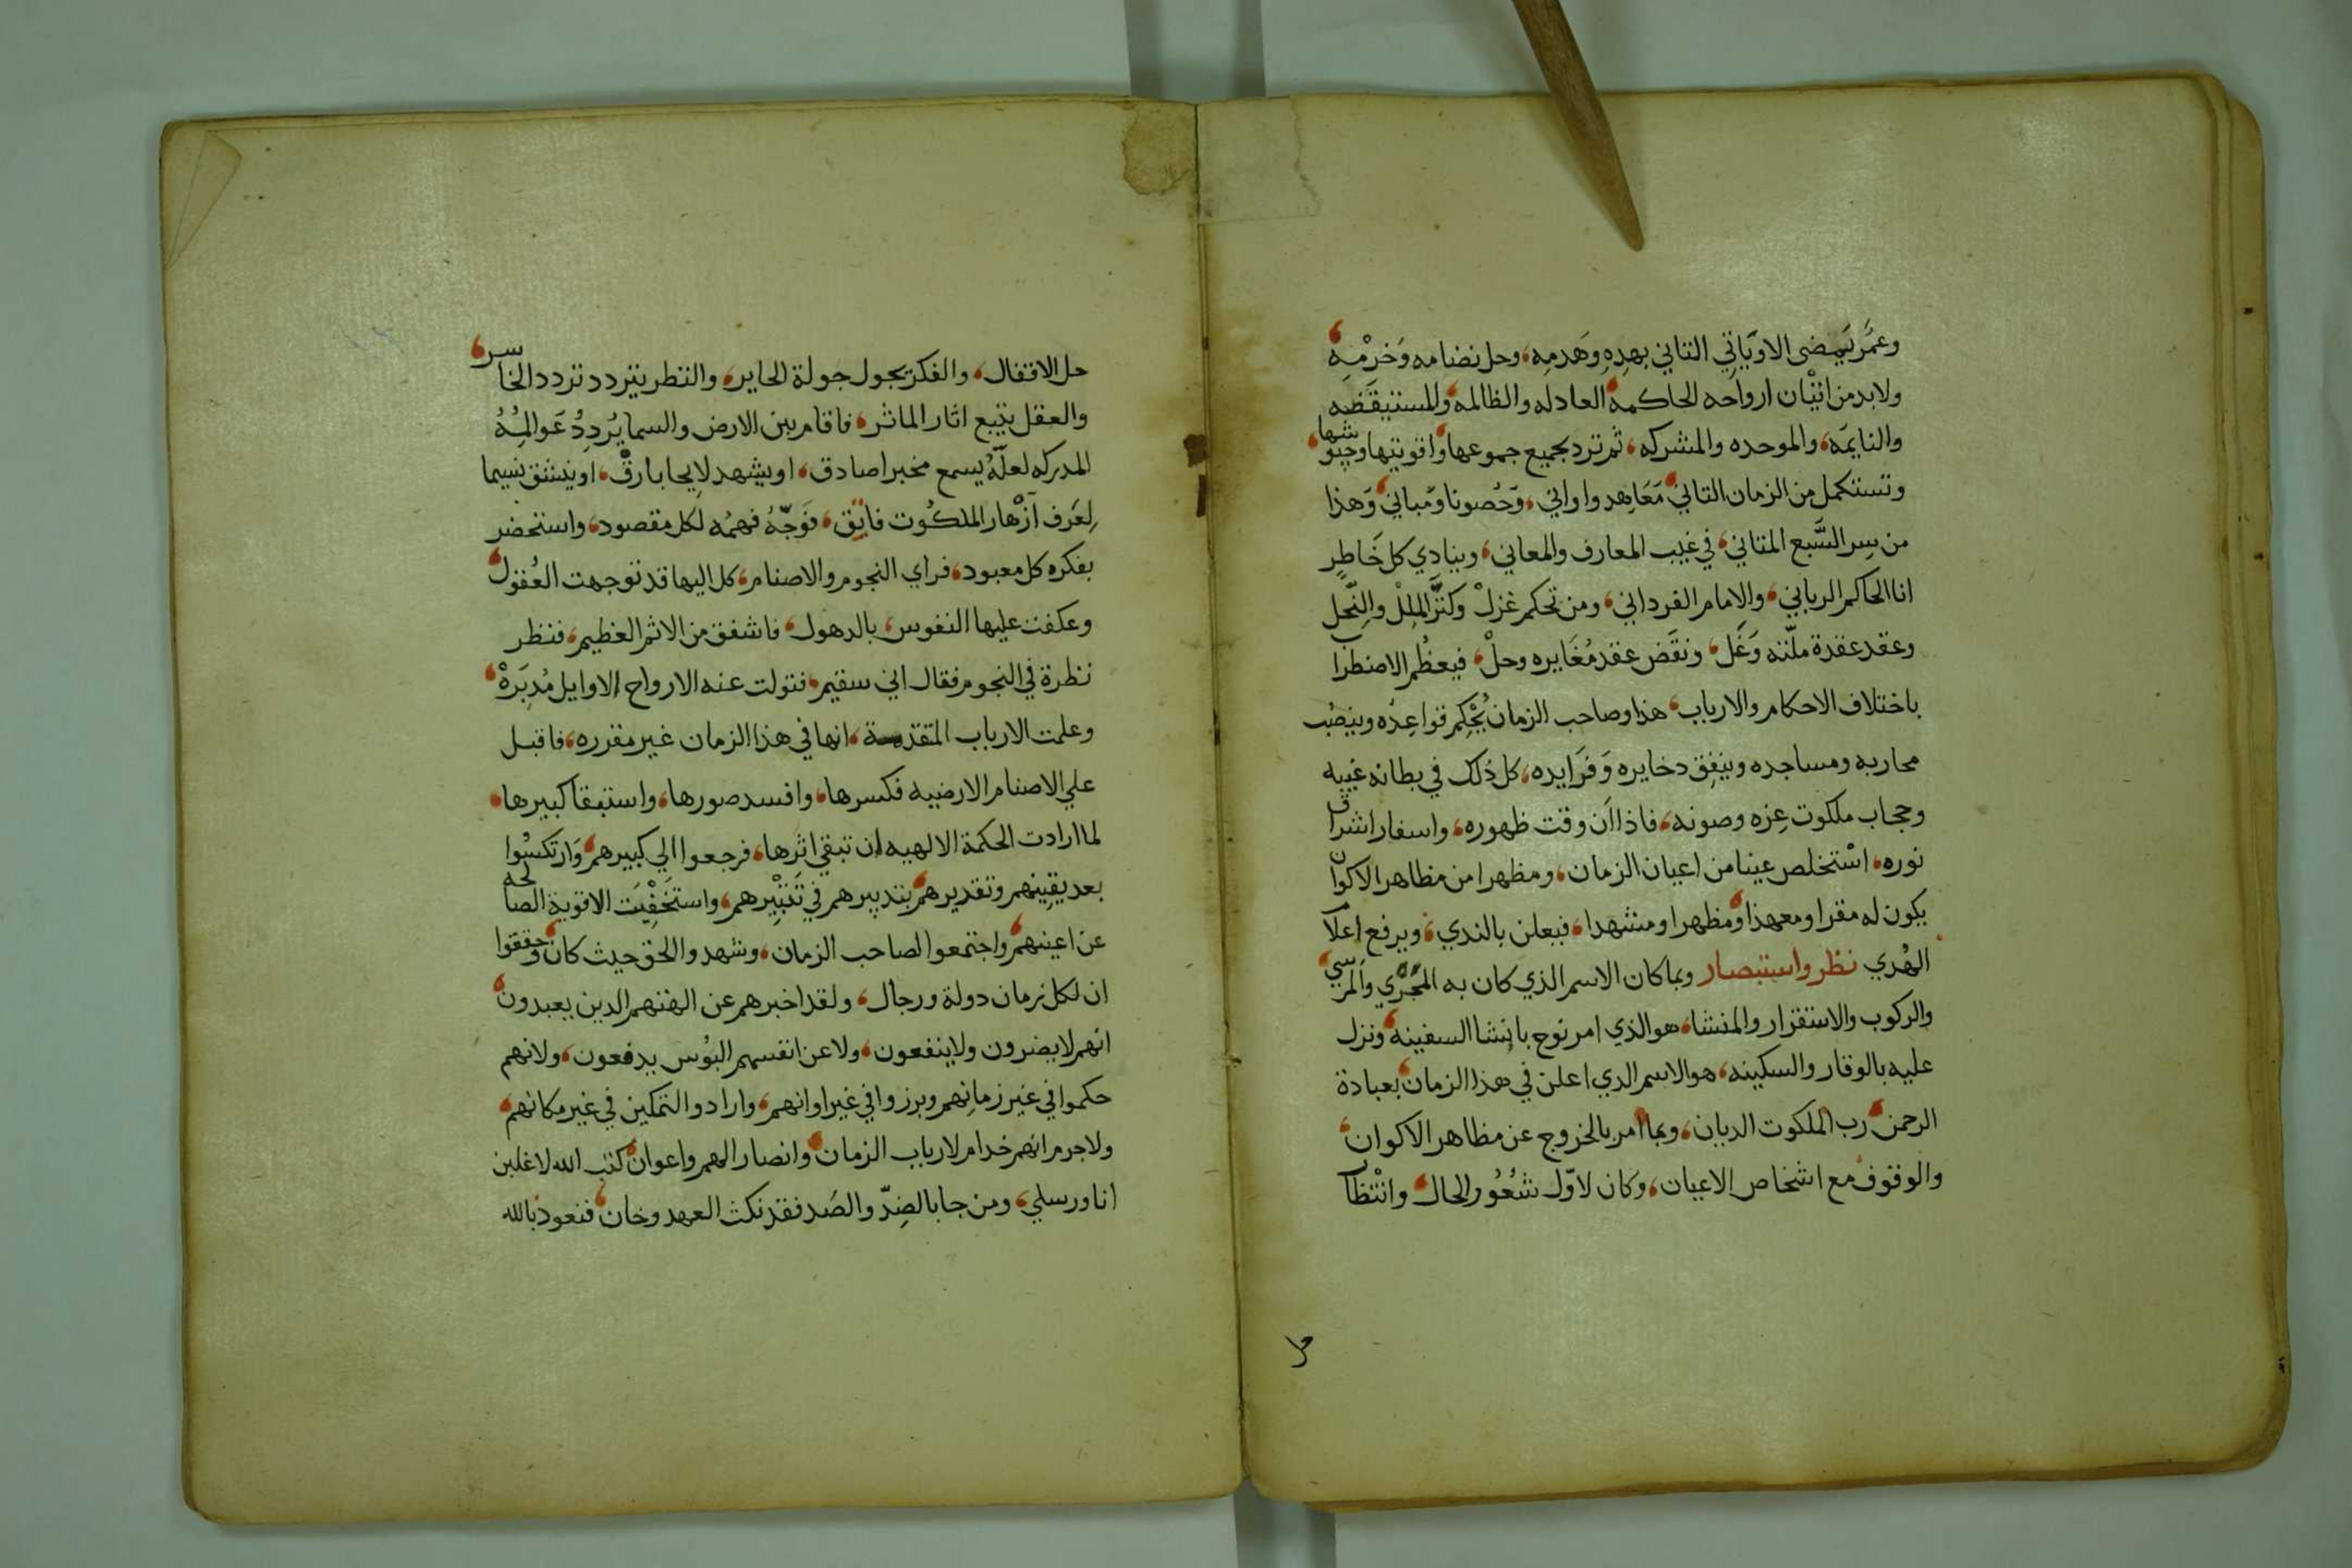 وعمَّر يَمضى الاويَاتِي الثاني بهدِهِ وَهَدمِه، وحل نضامه وَخرْمِهِ،
ولابد من اتيْان ارواحه الحاكمة، العادله والظالمه، والمستيقَضه
والنايمَه، والموحده والمشركه، ثم ترد بجميع جموعها، واقويتها وجيوشها،
وتستكمل من الزمان الثاني، مَعَاهِد واواني، وَحُصونا ومَباني، وَهذا
من سِر السَّبع المثاني، في غيب المعارف والمعاني، وينادي كل خَاطِر
انا الحاكم الرباني، والامام الفرداني، ومن تحكم عَزلْ وكثَّر المِلل والنِّحل
وعقد عقدة ملّته وَغَل، ونقَض عقد مُغَايره وحلْ، فيعظُم الاضطراب
باختلاف الاحكام والارباب، هذا وصاحب الزمان يُحْكِم قواعِدُه وينصُب
محاربه ومساجده وينفِق دخايره وَفَرَايده، كل ذلك في بطانه غيبه
وحجاب ملكوت عِزه وصونه، فاذا آن وقت ظهوره، واسفار اشراق
نوره، اسْتخلص عينا من اعيان الزمان، ومظهرا من مظاهر الاكوان
يكون له مقرا ومعهدا، ومظهرا ومشهدا، فيعلن بالندي، ويرفع اعلام
الهُدي نظر واستبصار وبما كان الاسم الذي كان به المَجْري والمرسي،
والركوب والاستقرار والمنشا، هو الذي امر نوح بانشا السفينه، ونزل
عليه بالوقار والسكينه، هو الاسم الدي اعلن في هذا الزمان، بعبادة
الرحمن، رب الملكوت الديان، وبما امر بالخروج عن مظاهر الاكوان،
والوقوف مع اشخاص الاعيان، وكان لاوّل شعُوُر الحال، وانْتظار
حل
حل الاقفال، والفكر يجول جولة الحاير، والنظر يتردد تردد الخاسر،
والعقل يتبع اثار الماثر، فاقام بين الارض والسما يُردِدُ عَوالمِهُ
المدركه لعلّهُ يسمع مخبرا صادق، او يشهد لايحا بارق، او ينشق نسيما
لِعَرف آزْهار الملكُوت فايِق، فوَجّهُ فهمُه لكل مقصود، واستحضر
بفكره كل معبود، فراي النجوم والاصنام، كل اليها قد توجهت العُقول،
وعكفت عليها النفوس، بالدهول، فاشفق من الاثم العَظيم، فنظر
نظرة في النجوم فقال اني سقيم، فتولت عنه الارواح الاوايل مُدبَرَهْ،
وعلمت الارباب المتقدمة، انها في هذا الزمان غير مقرره، فاقبل
علي الاصنام الارضيه فكسرها، وافسد صورها، واستبقا كبيرها،
لما ارادت الحكمة الالهيه ان تبقي اثرِها، فرجعوا الي كبيرهم، وَارتكسُوا
بعد يقِينهم وتقديرهم، بتدبيرهم في تَتبْيِرهم، واستَخفْيَت الاقوية الصالحه
عن اعينهم، واجتمعوا لصاحب الزمان، وشهدوا الحق حيث كان، وحققوا
ان لكل زمان دولة ورجال، ولقد اخبرهم عن الهتهم الدين يعبدون،
انهم لا يضرون ولا ينفعون، ولا عن انفسهم البؤس يدفعون، ولانهم
حكموا في غير زمانِهم وبرزوا في غير اوانهم، وارادوا التمكين في غير مكانهم،
ولا جرم انهم خدام لارباب الزمان، وانصار الهم واعوان، كتب الله لاغلبن
انا ورسلي، ومن جا بالضِدّ والصَد فقد نكث العهد وخان، فنعوذ بالله